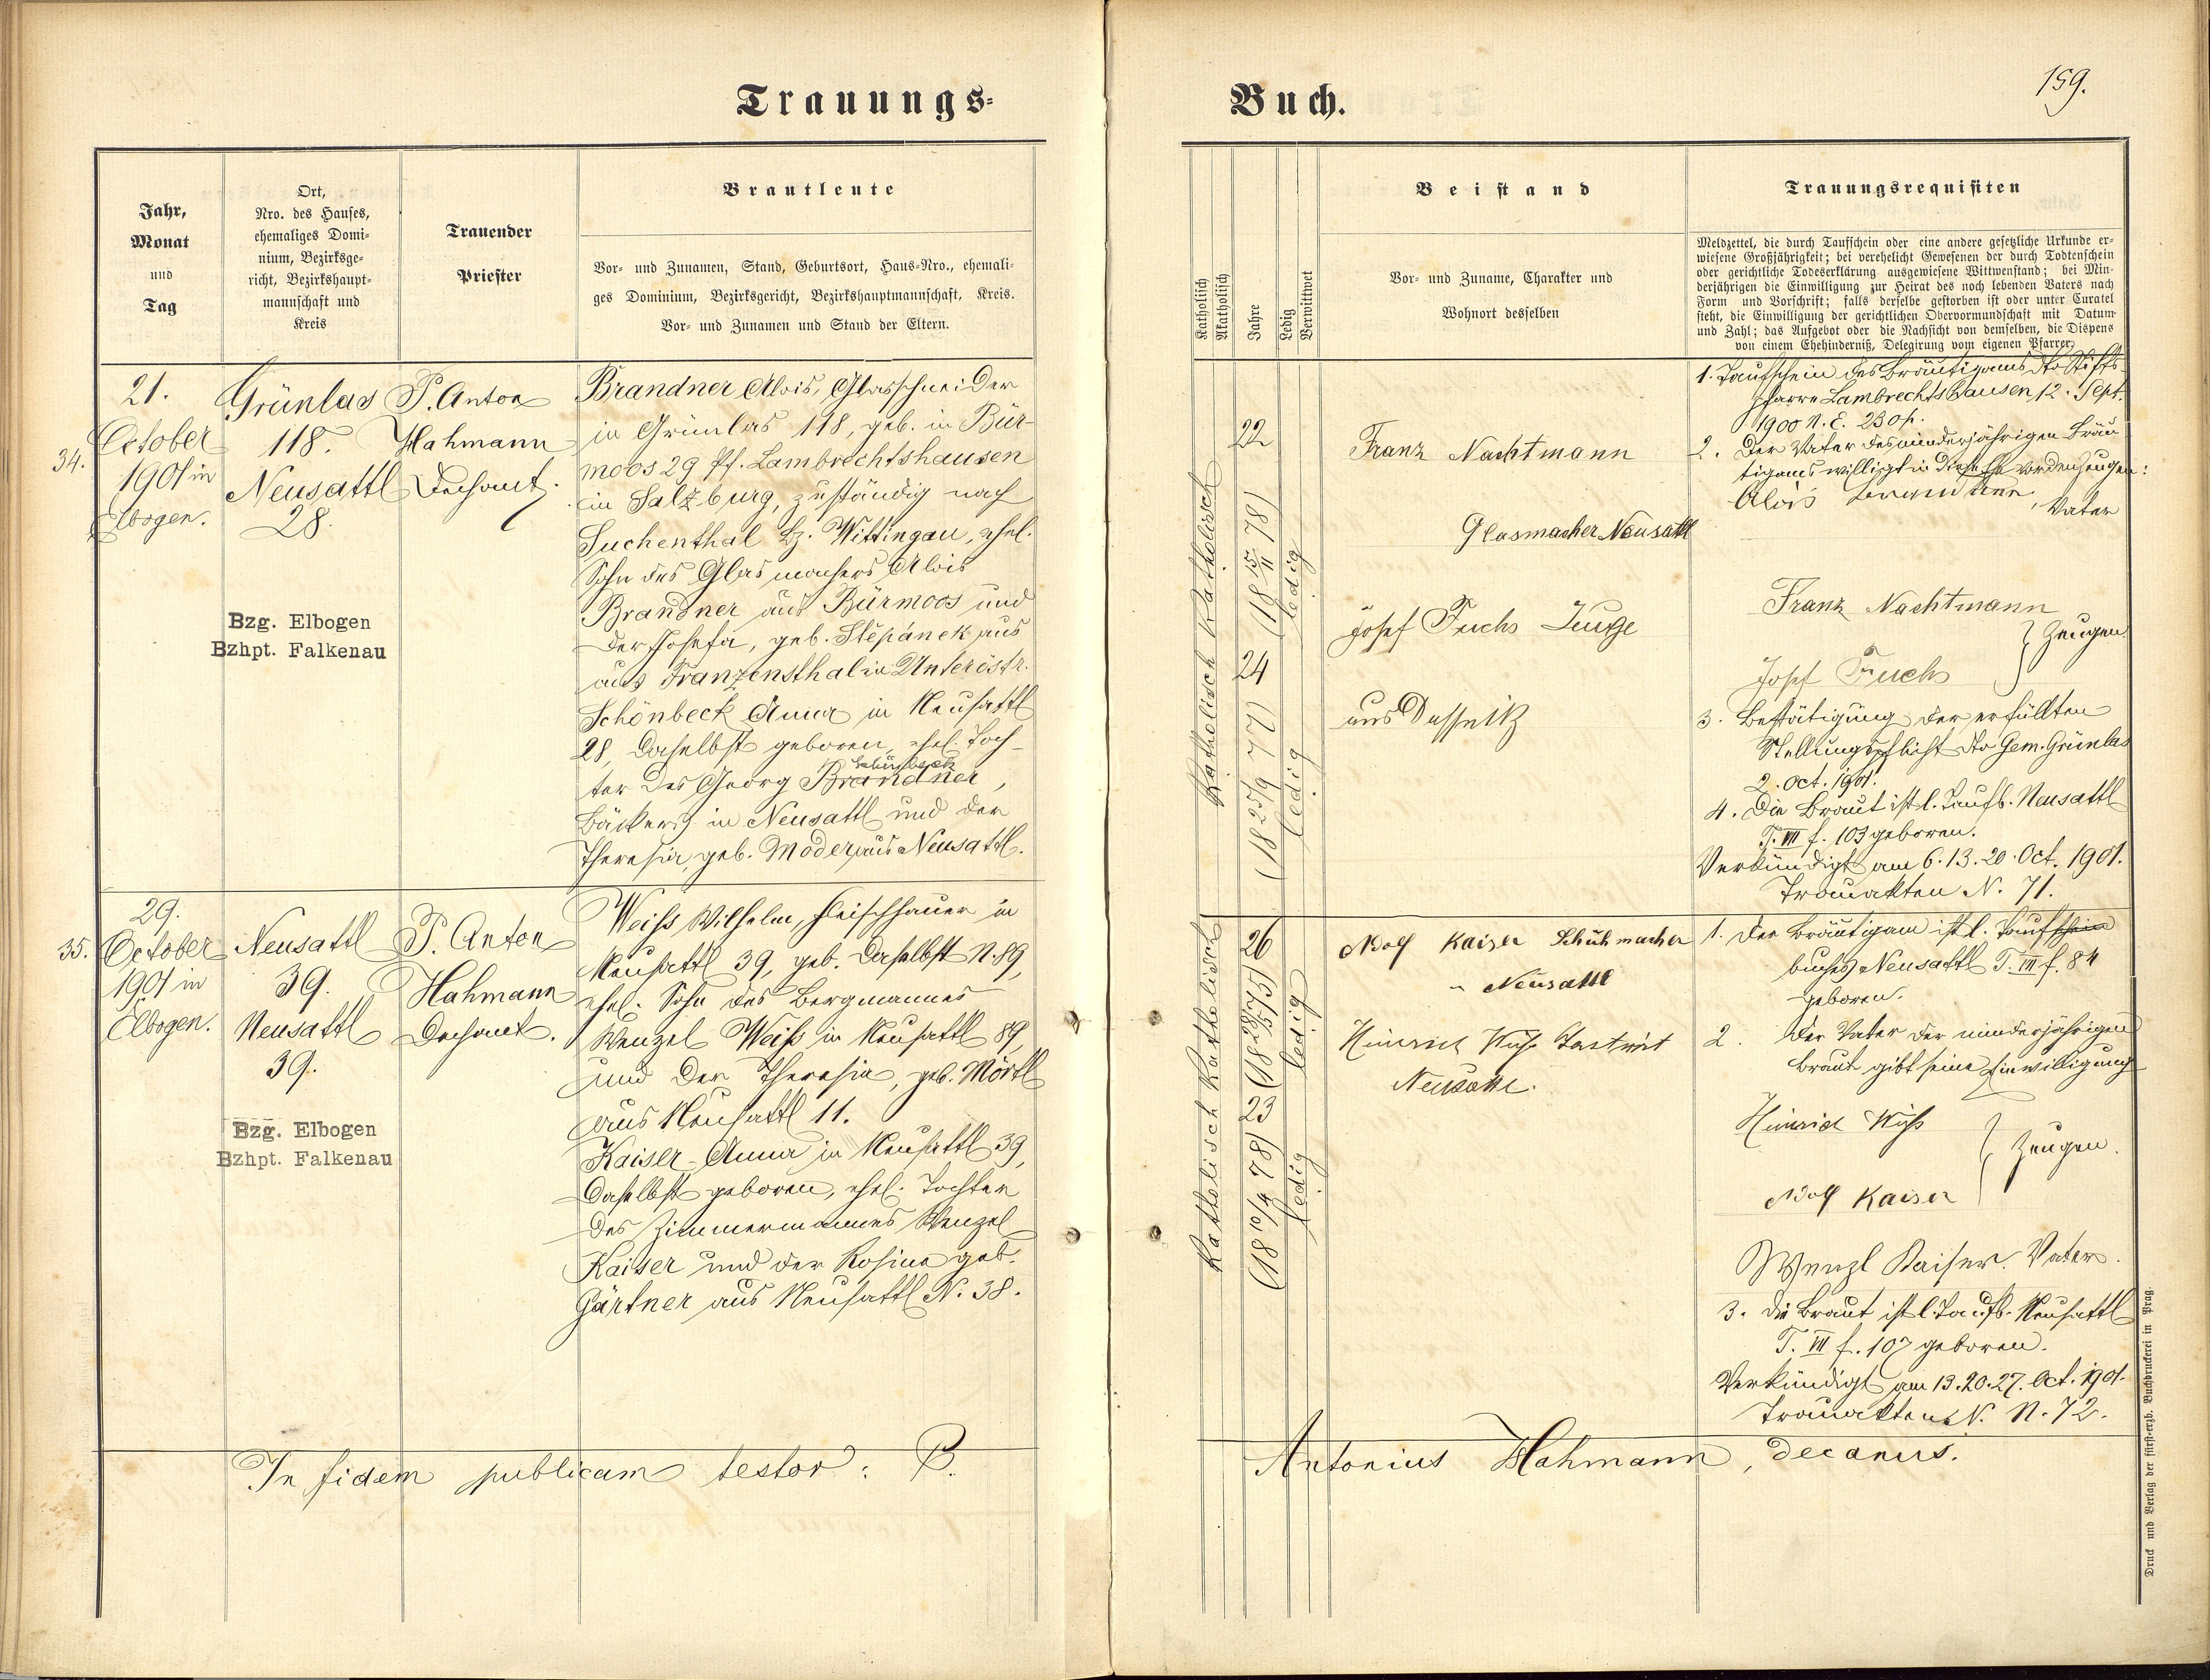 Trauungs-
Buch.
159.
Jahr,
Monat
und
Tag
Ort,
Nro. des Hauses,
ehemaliges Domi-
nium, Bezirksge-
richt, Bezirkshaupt-
mannschaft und
Kreis
Trauender
Priester
Brautleute
Vor- und Zunamen, Stand, Geburtsort, Haus-Nro., ehemali-
ges Dominium, Bezirksgericht, Bezirkshauptmannschaft, Kreis.
Vor- und Zunamen und Stand der Eltern.
Katholisch
Akatholisch
Jahre
Ledig
Verwittwet
Beistand
Vor- und Zuname, Charakter und
Wohnort desselben
Trauungsrequisiten
Meldzettel, die durch Taufschein oder eine andere gesetzliche Urkunde er-
wiesene Großjährigkeit; bei verehelicht Gewesenen der durch Todtenschein
oder gerichtliche Todeserklärung ausgewiesene Wittwenstand; bei Min-
derjährigen die Einwilligung zur Heirat des noch lebenden Vaters nach
Form und Vorschrift; falls derselbe gestorben ist oder unter Curatel
steht, die Einwilligung der gerichtlichen Obervormundschaft mit Datum
und Zahl; das Aufgebot oder die Nachsicht von demselben, die Dispens
von einem Ehehinderniß, Delegirung vom eigenen Pfarrer.
34.
21.
October
1901 in
Elbogen.
Grünlas
118.
Neusattl
28.
Bzg. Elbogen
Bzhpt. Falkenau
P. Anton
Hahmann
Dechant.
Brandner Alois, Glasschneider
in Grünlas 118, geb. in Bür-
moos 29 Pf. Lambrechtshausen
in Salzburg, zuständig nach
Suchenthal Bz. Wittingau, ehel.
Sohn des Glasmachers Alois
Brandner aus Bürmoos und
der Josefa, geb. Stěpánek aus
aus Franzensthal in Unteröstr.
Schönbeck Anna in Neusattl
28, daselbst geboren, ehel. Toch-
Schönbeck
ter des Georg Brandner,
Bäckers in Neusattl und der
Theresia, geb. Moder aus Neusattl.
Katholisch Katholisch
22
(18 15/11 78)
ledig
24
(18 25/9 77)
ledig
Franz Nachtmann
Glasmacher Neusattl
Josef Fuchs Zeuge
aus Dassnitz
1. Taufschein des Bräutigams dto Stifts-
pfarre Lambrechtshausen, 12. Sept.
1900 N. E. 230/.
2. Der Vater des minderjährigen Bräu-
tigams willigt in diese Ehe vor den Zeugen:
Alois Brandner, Vater
Franz Nachtmann
Josef Fuchs
} Zeugen
3. Bestätigung der erfüllten
Stellungspflicht dto Gem. Grünlas
2. Oct. 1901.
4. Die Braut ist l. Taufb. Neusattl
T. VII f. 103 geboren.
Verkündigt am 6. 13. 20. Oct. 1901.
Trauakten N. 71.
35.
29.
October
1901 in
Elbogen.
Neusattl
39.
Neusattl
39.
Bzg. Elbogen
Bzhpt. Falkenau
P. Anton
Hahmann
Dechant.
Weiss Wilhelm, Fleischhauer in
Neusattl 39, geb. daselbst N. 89,
ehel. Sohn des Bergmannes
Wenzel Weiss in Neusattl 89,
und der Theresia, geb. Mörtl
aus Neusattl 11.
Kaiser Anna in Neusattl 39,
daselbst geboren, ehel. Tochter
des Zimmermannes Wenzel
Kaiser und der Rosina geb.
Gärtner aus Neusattl N. 38.
Katholisch Katholisch
26
ledig
23
(18 10/4 78)
ledig
Adolf Kaiser Schuhmacher
Neusattl
Heinrich Weiss Gastwirt
Neusattl.
1. Der Bräutigam ist l. Taufschein
buches Neusattl T. VII f. 84
geboren.
2. Der Vater der minderjährigen
Braut gibt seine Einwilligung
Heinrich Weiss
Adolf Kaiser
} Zeugen.
Wenzl Kaiser. Vater.
3. Die Braut ist l. Taufb. Neusattl
T. VII f. 107 geboren.
Verkündigt am 13. 20. 27. Oct. 1901.
Trauakten N. 72.
In fidem publicam testor: P.
Antonius Hahmann, decanus.
Druck und Verlag der fürst-erzb. Buchdruckerei in Prag.